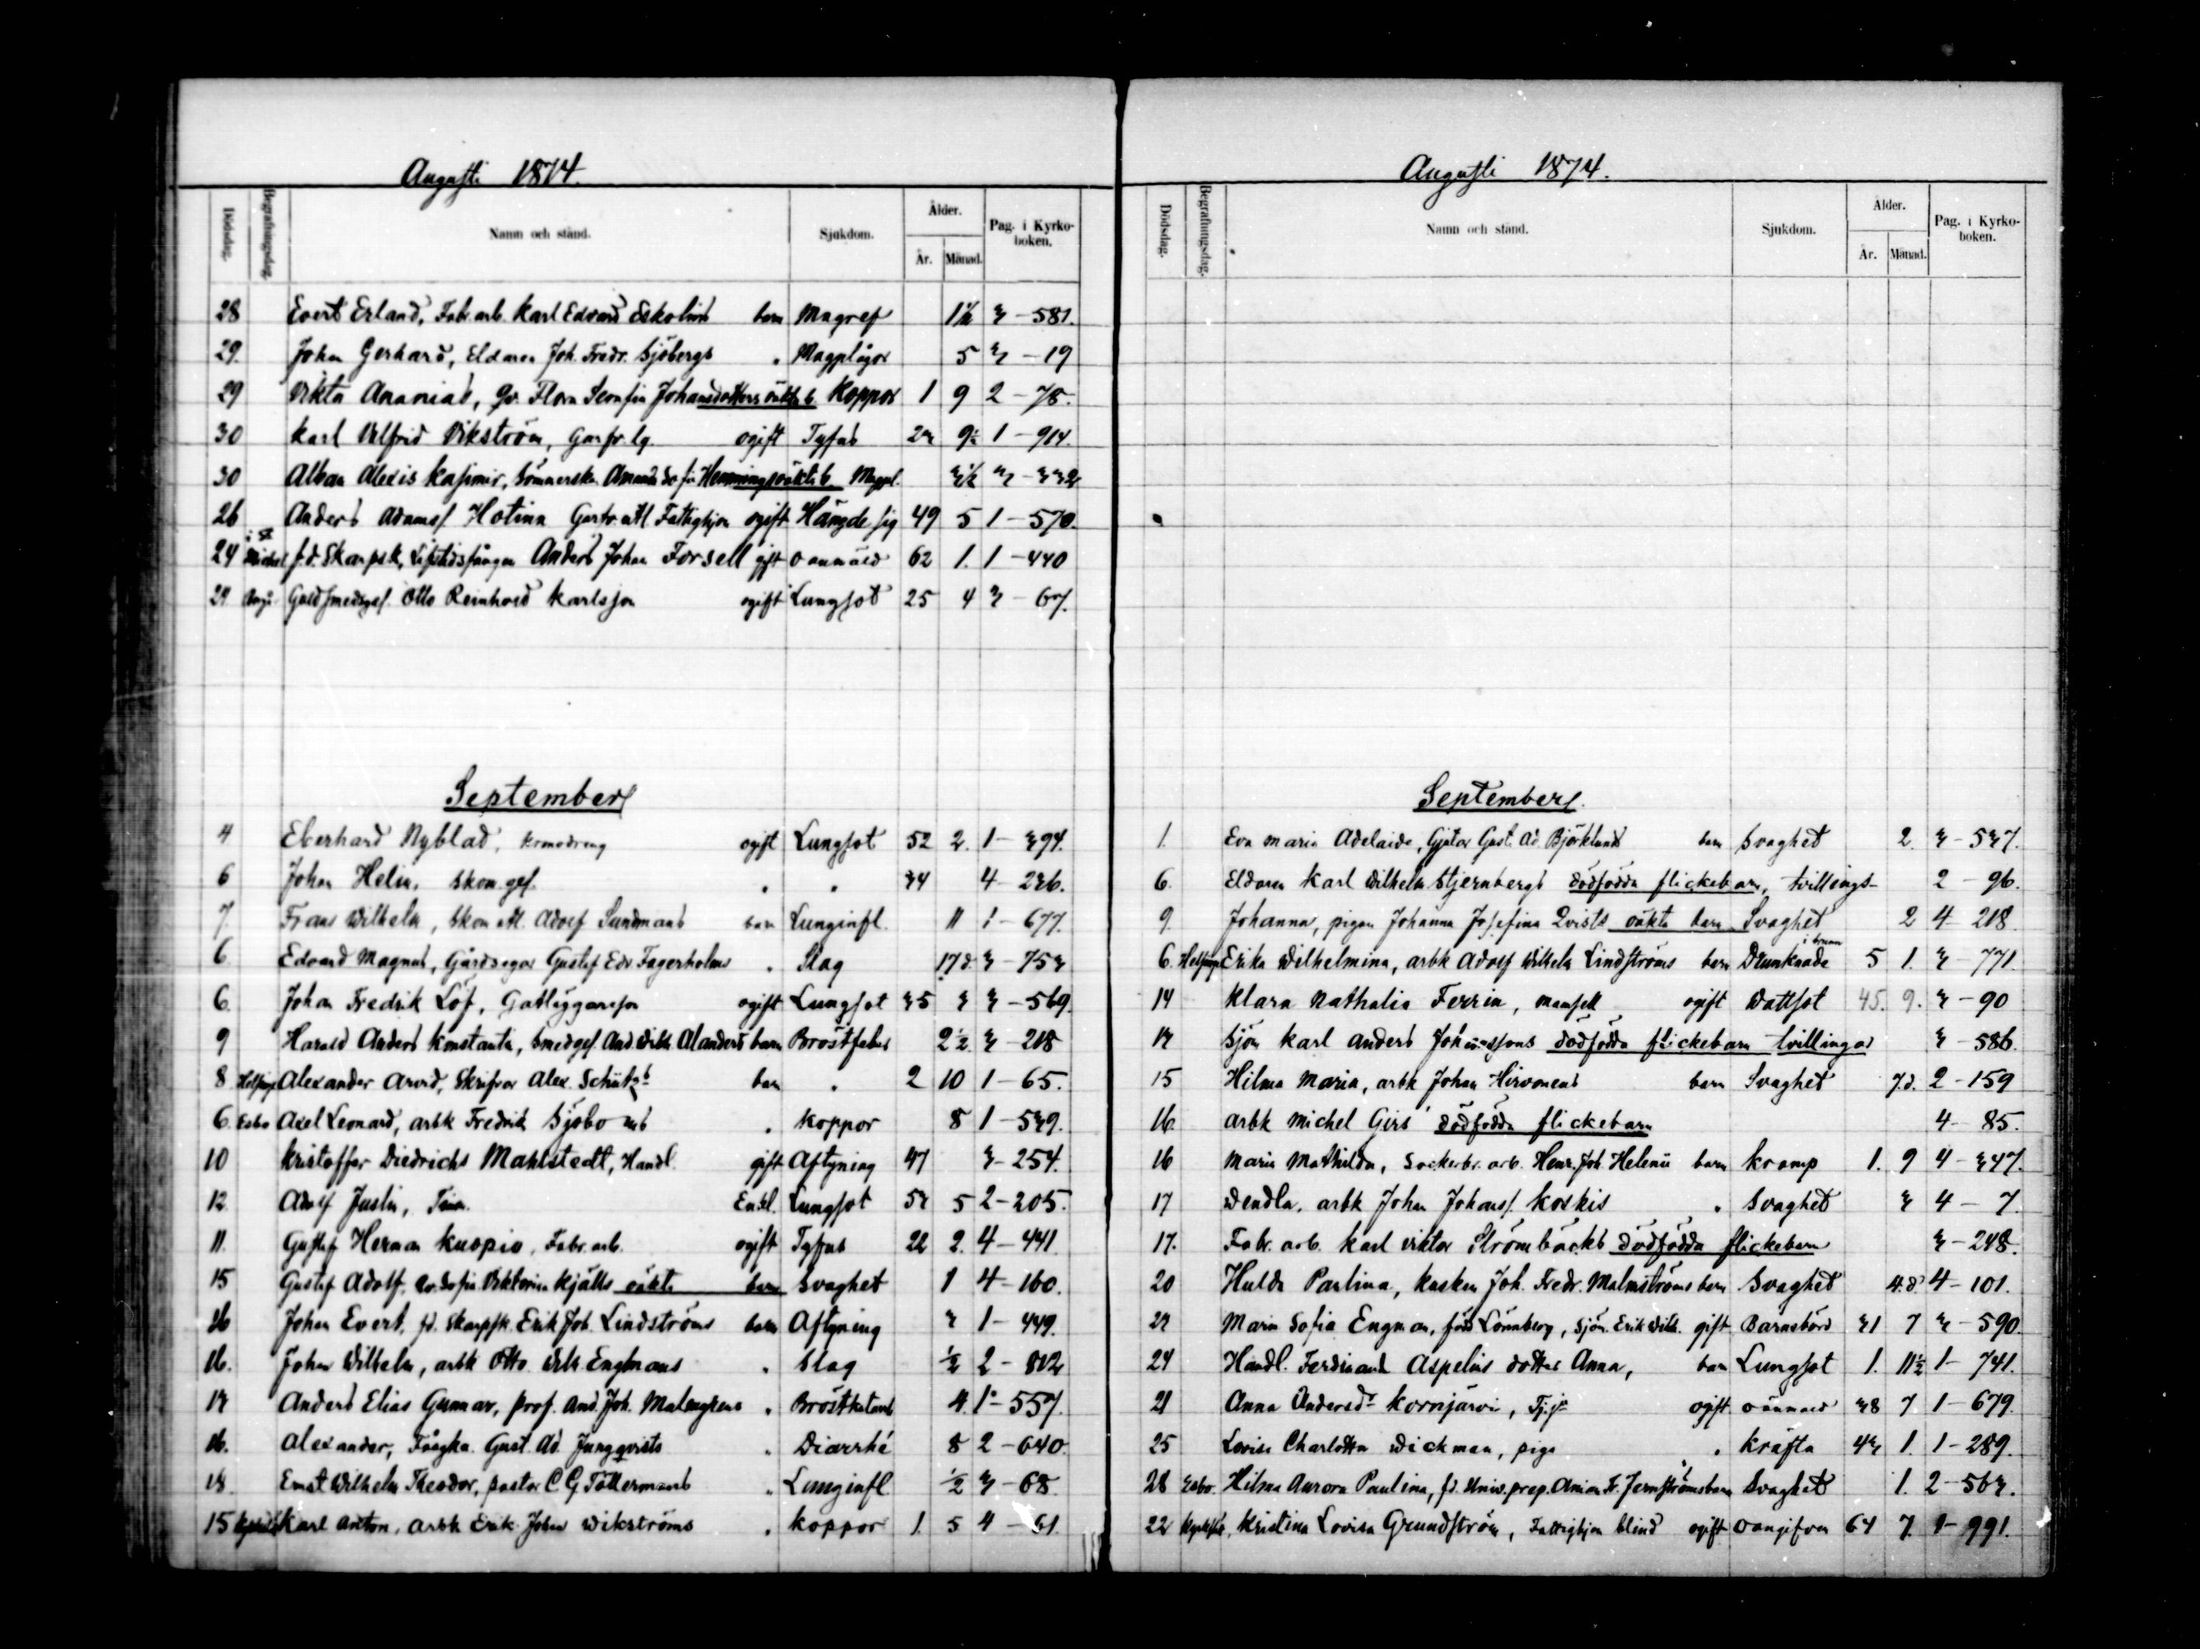 Augusti 1874.
Dödsdag. Begrafningsdag. Namn och stånd. Sjukdom. Ålder. År. Månad. Pag. i Kyrkoboken.
28 Evert Erland, Fabr. arb. Karl Edvard Eskolins barn Magref 1½ 3 - 581.
29. Johan Gerhard, Eldaren Joh. Fredr. Sjöbergs " Magplågor 5 3 - 19
29 Vikto Ananias, Qv. Flora Serafia Johansdotters oäkta b. Koppor 1 9 2 - 78.
30 Karl Vilfrid Vikström, Garfv. lg. ogift Tyfus 23 9½ 1 - 914.
30 Alban Alexis Kasimir, Sömmerskan Amanda Sofia Hennings oäkta b. Magpl. 3½ 3 - 332
26 Anders Adamsf. Hotinn Fattighjon ogift Hängde sig 49 5 1 - 570.
24 f.d. Skarpsk. Lifstidsfången Anders Johan Forsell gift oanmäld 62 1. 1 - 440
24 Guldsmedsgef. Otto Reinhold Karlsson ogift Lungsot 25 4 3 - 67.
September
4 Eberhard Nyblad, kronodreng ogift Lungsot 52 2. 1 - 394.
6 Johan Helin, Skom. gef. " " 34 4 - 236.
7. Frans Wilhelm, Skom. Adolf Sundmans barn Lunginfl. 11 1 - 677.
6 Edvard Magnus, Gårdsegar Gustaf Edv. Fagerholms " Slag 17 d. 3 - 753
6. Johan Fredrik Löf, Gatläggaresson ogift Lungsot 35 3 3 - 569.
9 Harald Anders Konstantin, Smedgef. And. Wilh. Alanders barn Bröstfeber 2½ 3 - 218
8 Helsinge Alexander Arvid, Skrifvar Alex. Schütz's barn " 2 10 1 - 65.
6 Esbo Axel Leonard, arbk Fredrik Sjöboms " Koppor 8 1 - 539.
10 Kristoffer Diedrichs Mahlstedt, Handl. gift Aftyning 47 3 - 254.
12 Adolf Juslin, Enkl. Lungsot 53 5 2 - 205.
11. Gustaf Herman Kuopio, Fabr. arb. ogift Tyfus 22 2. 4 - 441
15 Gustaf Adolf, Qv. Sofia Viktorina Kjälls oäkta barn Svaghet 1 4 - 160.
16 Johan Evert, fd. Skarpsk. Erik Joh. Lindströms barn Aftyning 3 1 - 449.
16. Johan Wilhelm, arbk Otto Wilh. Engmans " Slag ½ 2 - 812
13 Anders Elias Gunnar, prof. And. Joh. Malmgrens " Bröstkatarr 4. 1 - 557.
16. Alexander, Gust. Ad. Jungqvists " Diarrhé 8 2 - 640.
18 Ernst Wilhelm Theodor, pastor C G Töttermans " Lunginfl ½ 3 - 68.
15 Karl Anton, arbk Erik Johan Wikströms " Koppor 1. 5 4 - 61.
Augusti 1874.
Dödsdag. Begrafningsdag. Namn och stånd. Sjukdom. Ålder. År. Månad. Pag. i Kyrkoboken.
September.
1. Eva Maria Adelaide, Gjutar Gust. Ad. Björklunds barn Svaghet 2. 3 - 537.
6. Eldaren Karl Wilhelm Stjernbergs dödfödda flickebarn, tvillings- 2 - 96.
9. Johanna, pigan Johanna Josefina Qvists oäkta barn Svaghet 2 4 - 218.
6. Helsinge Erika Wilhelmina, arbk Adolf Wilhelm Lindströms barn Drunknade i brunn 5 1. 3 - 771.
14 Klara Nathalia Ferrin, mamsell ogift Wattsot 45. 9. 3 - 90
13 Sjöm Karl Anders Johanssons dödfödda flickebarn tvillingar 3 - 586.
15 Hilma Maria, arbk Johan Hirvonens barn Svaghet 7.d. 2 - 159
16. arbk Michel Girs' dödfödda flickebarn 4 - 85.
16 Maria Mathilda, Sockerbr. arb. Henr. Joh. Helenii barn Kramp 1. 9 4 - 347.
17 Wendla, arbk Johan Johansf. Koskis " Svaghet 3 4 - 7.
17. Fabr. arb. Karl Viktor Strömbäcks dödfödda flickebarn 3 - 248.
20 Hulda Paulina, kusken Joh. Fredr. Malmströms barn Svaghet 4.d 4 - 101.
23 Maria Sofia Engman, född Lönnberg, Sjöm. Erik Wilh. gift Barnsbörd 31 7 3 - 590.
24 Handl. Ferdinand Aspelins dotter Anna, barn Lungsot 1. 11½ 1 - 741.
21 Anna Andersdr Kornjärvi, ogift oanmäld 38 7 1 - 679.
25 Lovisa Charlotta Wickman, piga " Kräfta 43 1. 1 - 289.
28 Esbo. Hilma Aurora Paulina, fd. Univ. prep. Anian Fr. Jernströms barn Svaghet 1. 2 - 563.
22 Kristina Lovisa Grundström, Fattighjon blind ogift oangifven 64 7. 1 - 991.